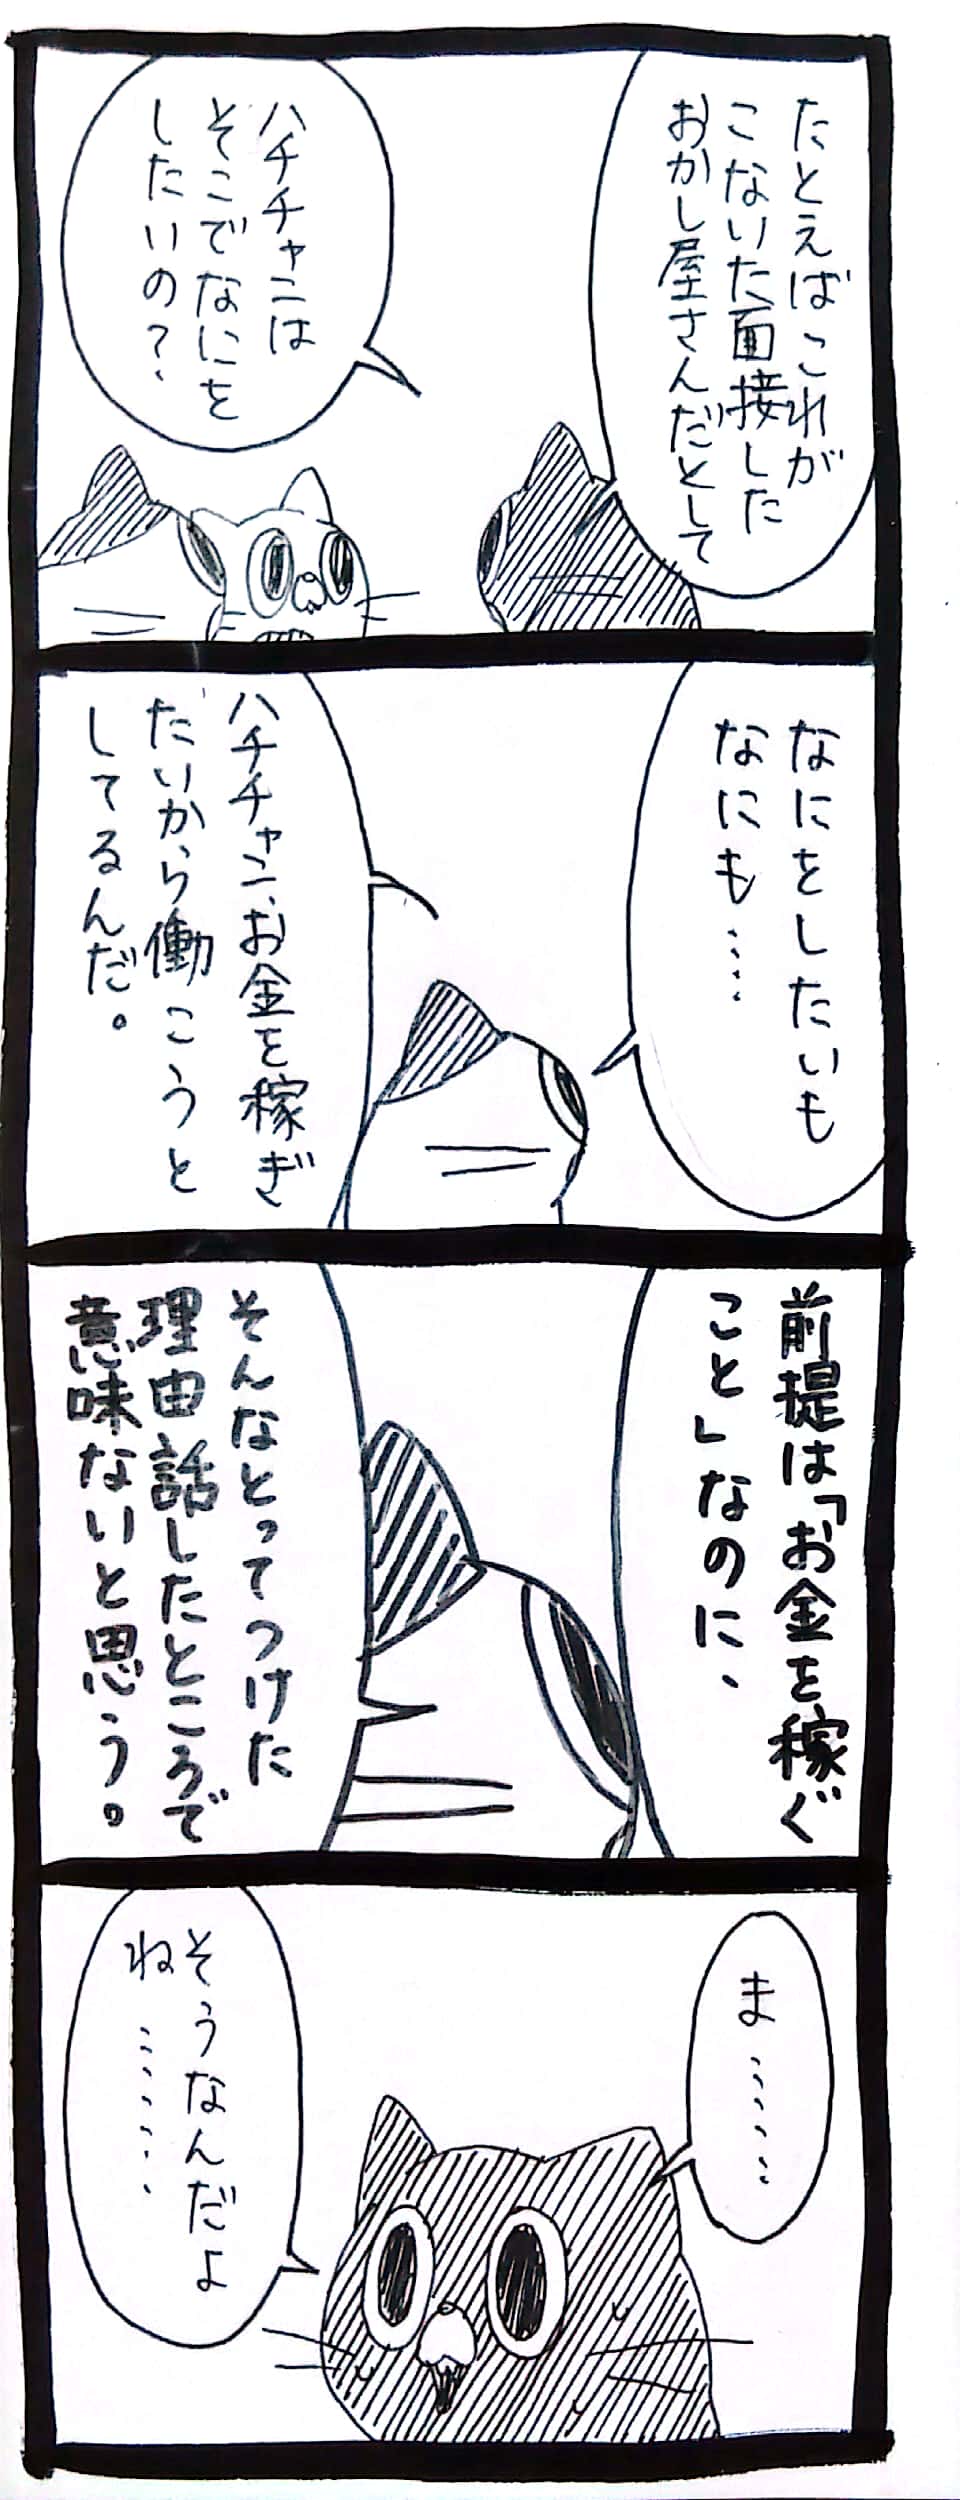 たとえばこれが
こないた面接した
おかし屋さんだとして
ハチチャンは
そこでなにを
したいの？
なにをしたいも
なにも……
ハチチャン、お金を稼ぎ
たいから働こうと
してるんだ。
前提は「お金を稼ぐ
こと」なのに、
そんなとってつけた
理由話したところで
意味ないと思う。
ま……
そうなんだよ
ね……